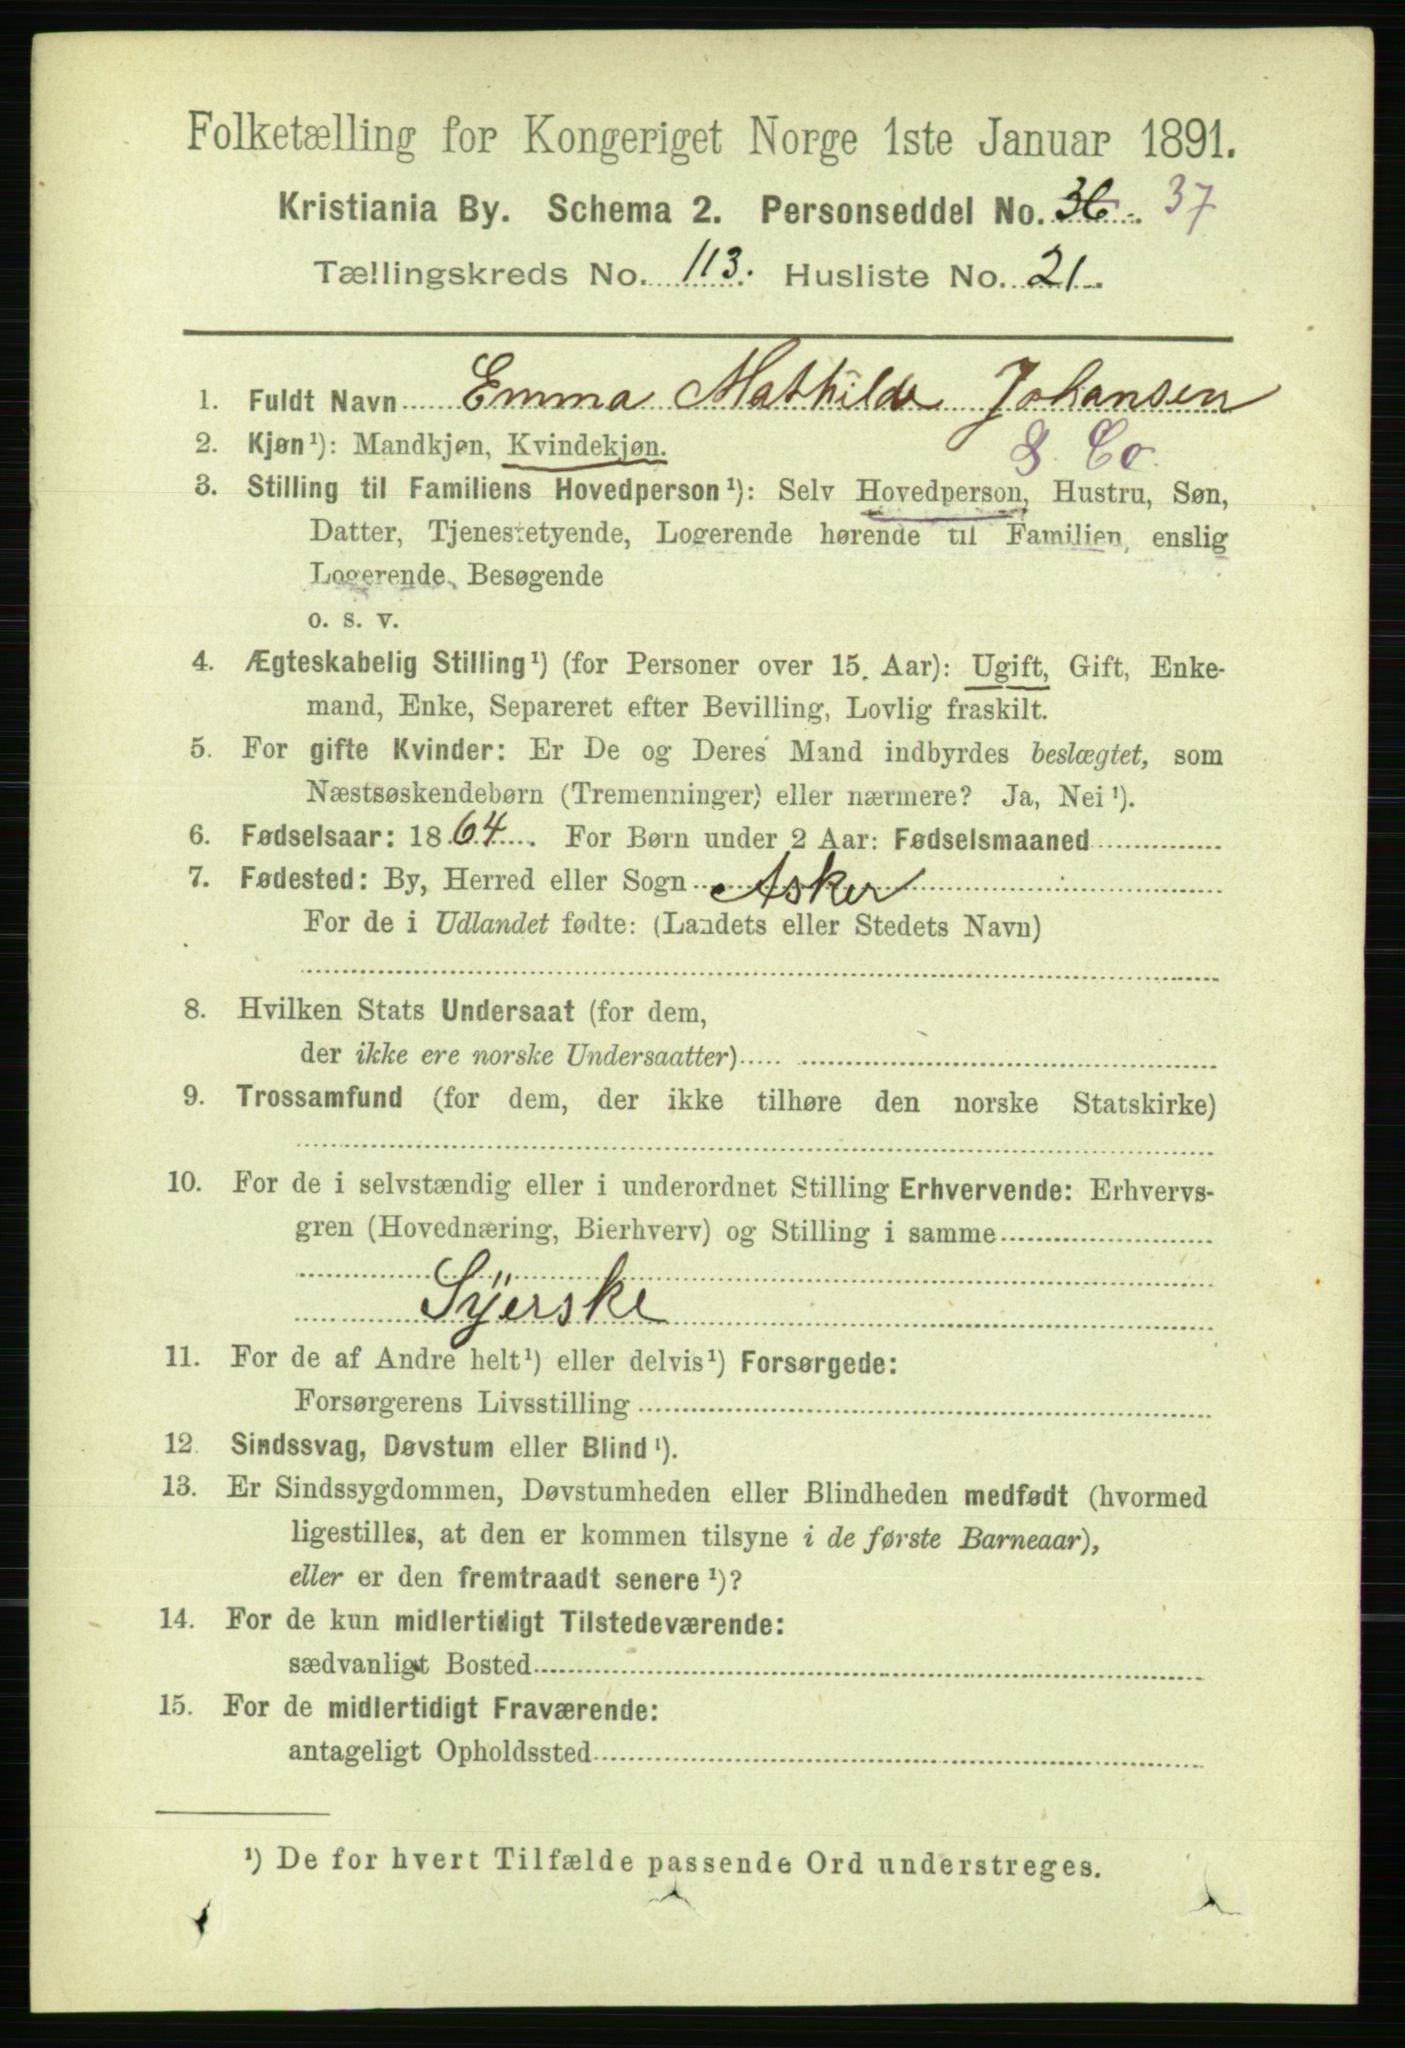 Folketælling for Kongeriget Norge 1ste Januar 1891.
Kristiania By. Schema 2. Personseddel No. 36. 37
Tællingskreds No. 113. Husliste No. 21.
1. Fuldt Navn Emma Mathilde Johansen
2. Kjøn¹): Mandkjøn, Kvindekjøn.
3. Stilling til Familiens Hovedperson¹): Selv Hovedperson, Hustru, Søn,
Datter, Tjenestetyende, Logerende hørende til Familien, enslig
Logerende, Besøgende
o. s. v.
4. Ægteskabelig Stilling¹) (for Personer over 15 Aar): Ugift, Gift, Enke-
mand, Enke, Separeret efter Bevilling, Lovlig fraskilt.
5. For gifte Kvinder: Er De og Deres Mand indbyrdes beslægtet, som
Næstsøskendebørn (Tremenninger) eller nærmere? Ja, Nei¹).
6. Fødselsaar: 1864. For Børn under 2 Aar: Fødselsmaaned
7. Fødested: By, Herred eller Sogn Asker
For de i Udlandet fødte: (Landets eller Stedets Navn)
8. Hvilken Stats Undersaat (for dem,
der ikke ere norske Undersaatter)
9. Trossamfund (for dem, der ikke tilhøre den norske Statskirke)
10. For de i selvstændig eller i underordnet Stilling Erhvervende: Erhvervs-
gren (Hovednæring, Bierhverv) og Stilling i samme
Syerske
11. For de af Andre helt¹) eller delvis¹) Forsørgede:
Forsørgerens Livsstilling
12. Sindssvag, Døvstum eller Blind¹).
13. Er Sindssygdommen, Døvstumheden eller Blindheden medfødt (hvormed
ligestilles, at den er kommen tilsyne i de første Barneaar),
eller er den fremtraadt senere¹)?
14. For de kun midlertidigt Tilstedeværende:
sædvanligt Bosted
15. For de midlertidigt Fraværende:
antageligt Opholdssted
¹) De for hvert Tilfælde passende Ord understreges.